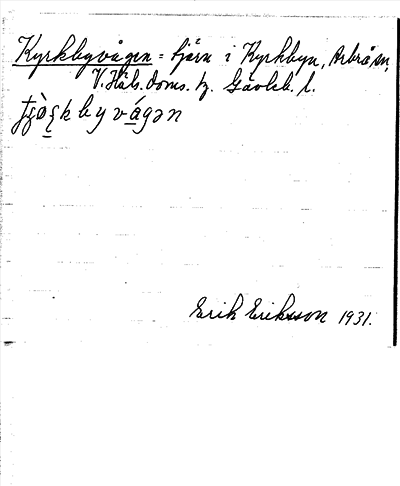 Kyrkbyvågen = tjärn i Kyrkbyn, Arbrå sn,
V. Häls. doms. tz. Gävleb. l.
Erik Eriksson 1931.